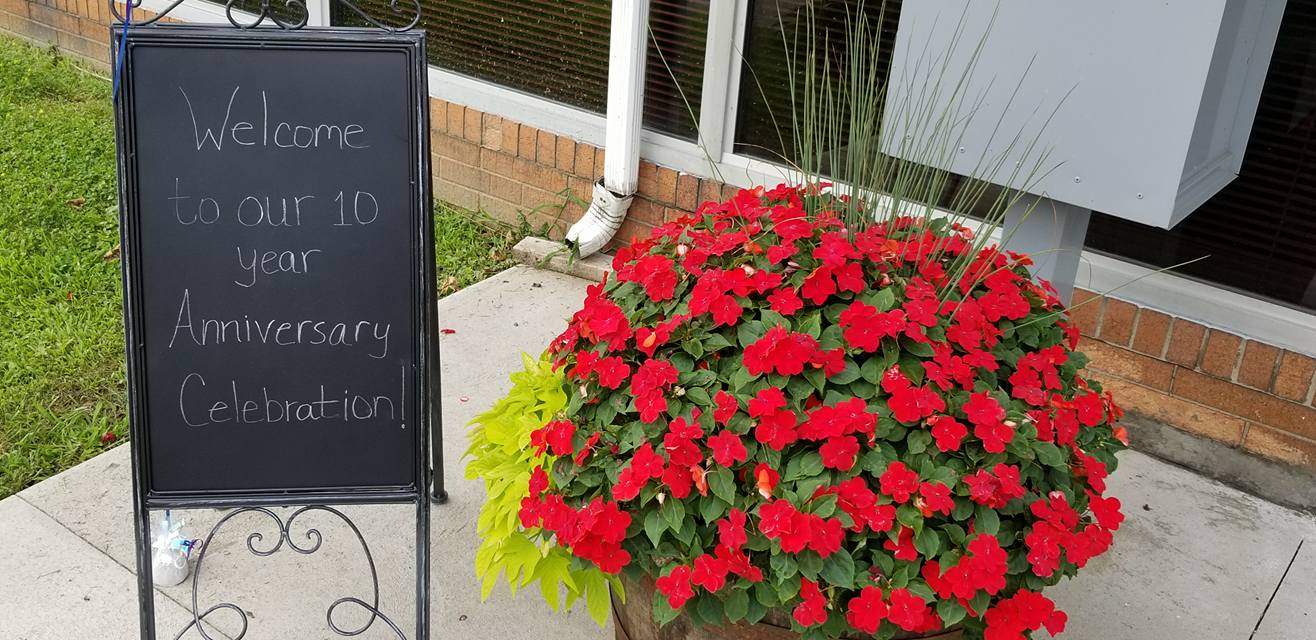 Welcome
to our 10
year
Anniversary
Celebration!